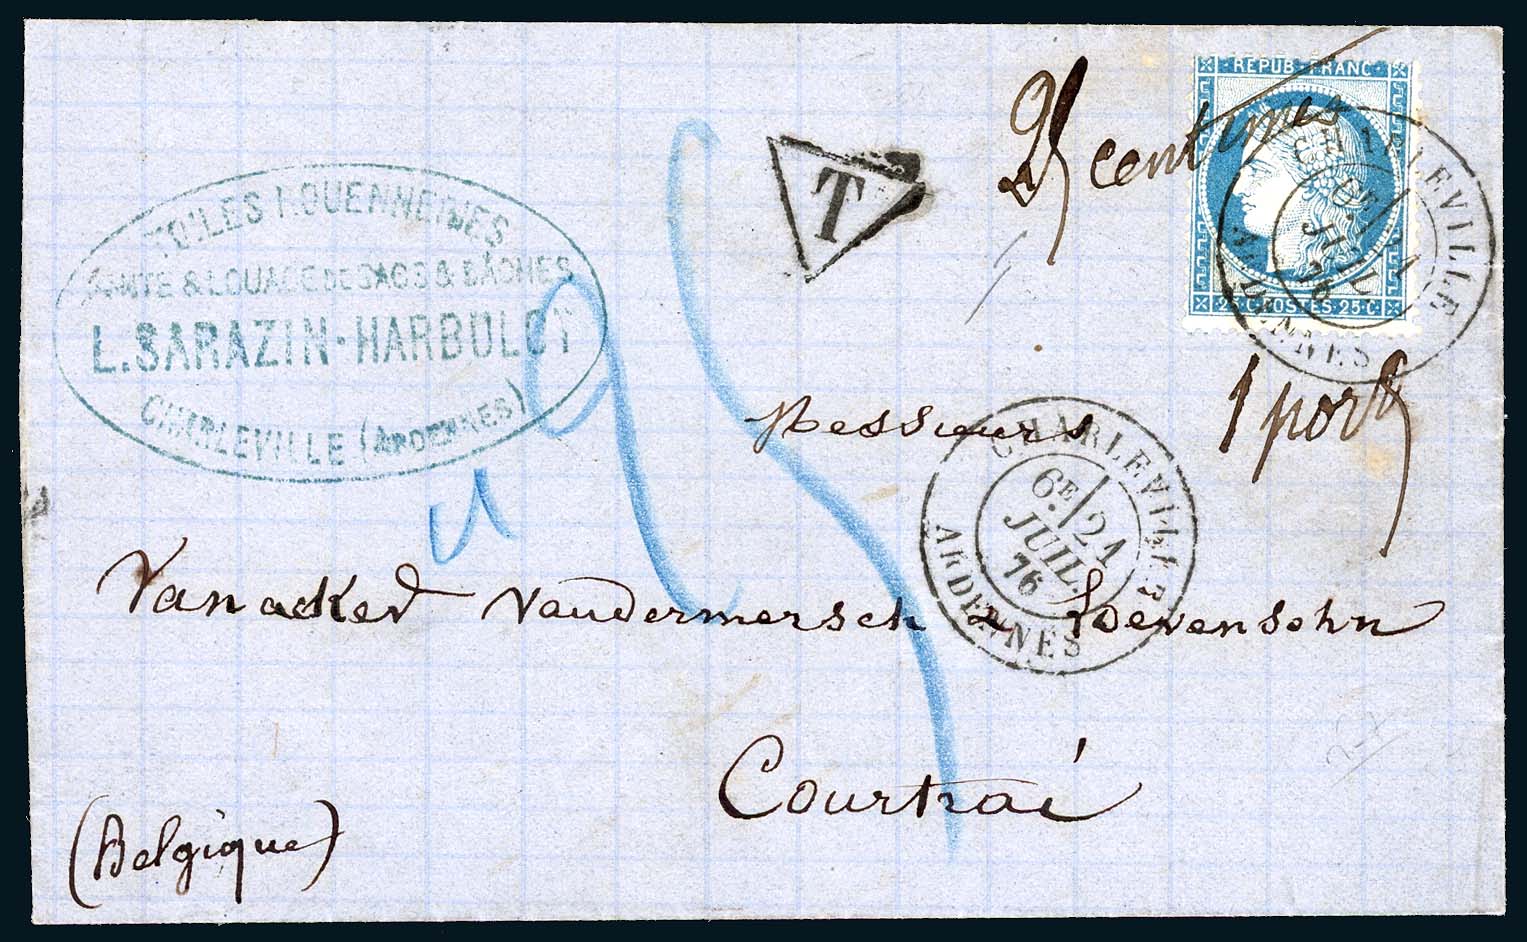 TOILES ROUENNERIES
VENTE & LOUAGE DE SACS & BÂCHES
L. SARAZIN-HARBULOT
CHARLEVILLE (ARDENNES)
T
25 centimes
REPUB·FRANC·
25·C·
POSTES
CHARLEVILLE
21
JUIL.
76
ARDENNES
1 port
Messieurs
CHARLEVILLE
6E 21
JUIL.
76
ARDENNES
Vanacker Vandermersch & Loevensohn
Courtrai
(Belgique)